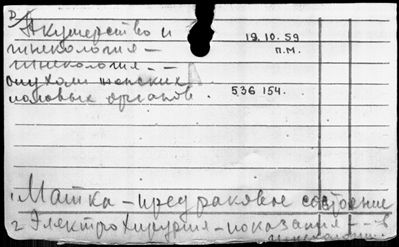 D
Акушерство и
гинекология —
гинекология. —
опухоли женских
половых органов.
19.10.59
П.М.
536 154.
1. Матка — предраковое состояние
2 Электрохирургия — показания — в
гинекологии.